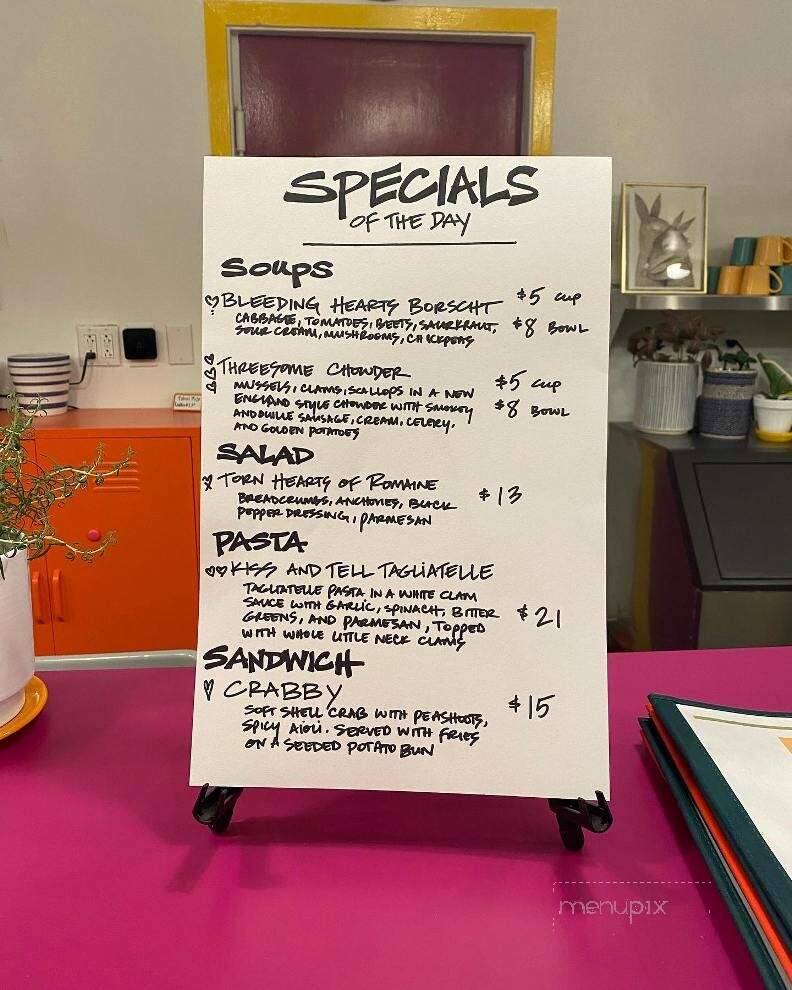 SPECIALS
OF THE DAY
SOUPS
BLEEDING HEARTS BORSCHT $5 CUP
CABBAGE, TOMATOES, BEETS, SAURKRAUT, $8 BOWL
SOUR CREAM, MUSHROOMS, CHICKPEAS
THREESOME CHOWDER $5 CUP
MUSSELS, CLAMS, SCALLOPS IN A NEW
ENGLAND STYLE CHOWDER WITH SMOKEY $8 BOWL
ANDOUILLE SAUSAGE, CREAM, CELERY,
AND GOLDEN POTATOES
SALAD
TORN HEARTS OF ROMAINE
BREADCRUMBS, ANCHOVIES, BLACK $13
PEPPER DRESSING, PARMESAN
PASTA
KISS AND TELL TAGLIATELLE
TAGLIATELLE PASTA IN A WHITE CLAM
SAUCE WITH GARLIC, SPINACH, BITTER $21
GREENS, AND PARMESAN, TOPPED
WITH WHOLE LITTLE NECK CLAMS
SANDWICH
CRABBY $15
SOFT SHELL CRAB WITH PEASHOOTS,
SPICY AIOLI. SERVED WITH FRIES
ON A SEEDED POTATO BUN
menupix